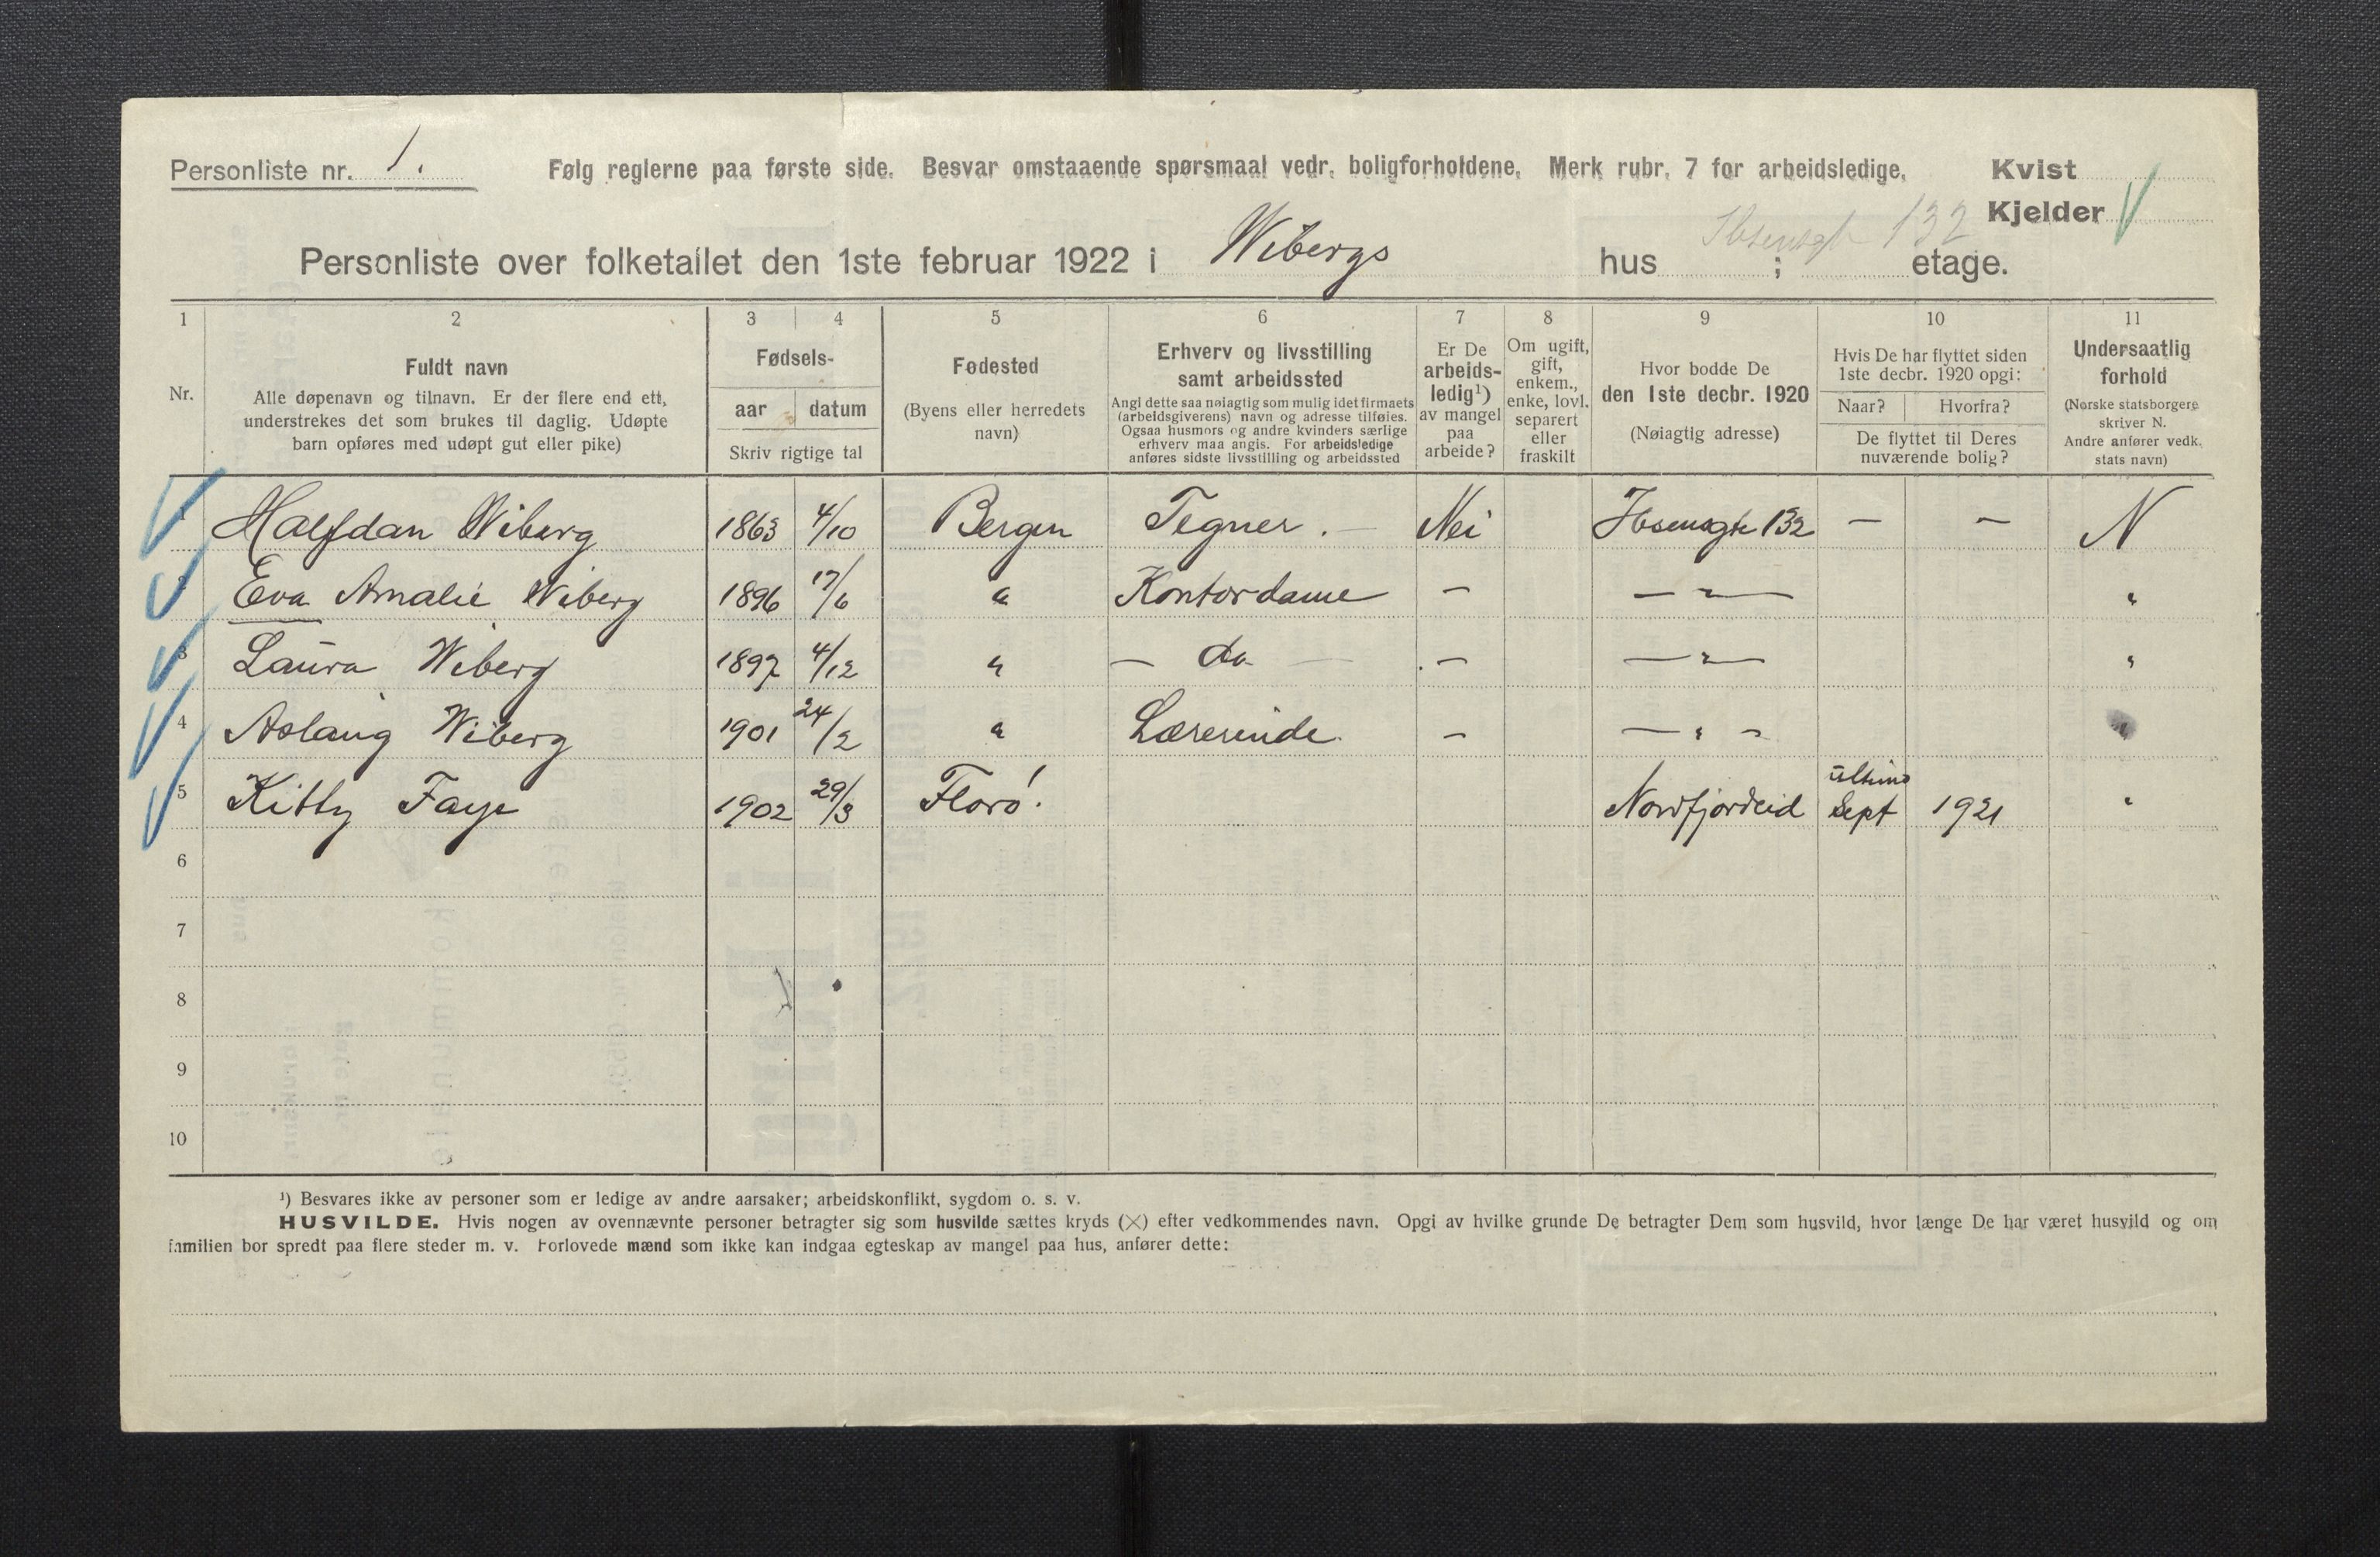 Personliste nr. 1. Følg reglerne paa første side. Besvar omstaaende spørsmaal vedr. boligforholdene. Merk rubr. 7 for arbeidsledige. Kvist
Ibsensgt 132 Kjelder
Personliste over folketallet den 1ste februar 1922 i Wibergs hus ; etage.
1 2 3 4 5 6 7 8 9 10 11
Nr.
Fuldt navn
Alle døpenavn og tilnavn. Er der flere end ett,
understrekes det som brukes til daglig. Udøpte
barn opføres med udøpt gut eller pike)
Fødsels-
aar datum
Skriv rigtige tal
Fødested
(Byens eller herredets
navn)
Erhverv og livsstilling
samt arbeidssted
Angi dette saa nøiagtig som mulig idet firmaets
(arbeidsgiverens) navn og adresse tilføies.
Ogsaa husmors og andre kvinders særlige
erhverv maa angis. For arbeidsledige
anføres sidste livsstilling og arbeidssted
Er De
arbeids-
ledig¹)
av mangel
paa
arbeide?
Om ugift,
gift,
enkem.,
enke, lovl.
separert
eller
fraskilt
Hvor bodde De
den 1ste decbr. 1920
(Nøiagtig adresse)
Hvis De har flyttet siden
1ste decbr. 1920 opgi:
Naar? Hvorfra?
De flyttet til Deres
nuværende bolig?
Undersaatlig
forhold
(Norske statsborgere
skriver N.
Andre anfører vedk.
stats navn)
1 Halfdan Wiberg 1863 4/10 Bergen Tegner. — Nei Ibsensgte 132 — — N
2 Eva Amalie Wiberg 1896 17/6 " Kontordame — — " — "
3 Laura Wiberg 1897 4/12 " — do — — — " — "
4 Aslaug Wiberg 1901 24/2 " Lærerinde. — — " — "
5 Kitty Faye 1902 29/3 Florø. Nordfjordeid ultimo Sept 1921 "
6
7
8
9
10
¹) Besvares ikke av personer som er ledige av andre aarsaker; arbeidskonflikt, sygdom o. s. v.
HUSVILDE. Hvis nogen av ovennævnte personer betragter sig som husvilde sættes kryds (×) efter vedkommendes navn. Opgi av hvilke grunde De betragter Dem som husvild, hvor længe De har været husvild og om
familien bor spredt paa flere steder m. v. Forlovede mænd som ikke kan indgaa egteskap av mangel paa hus, anfører dette: